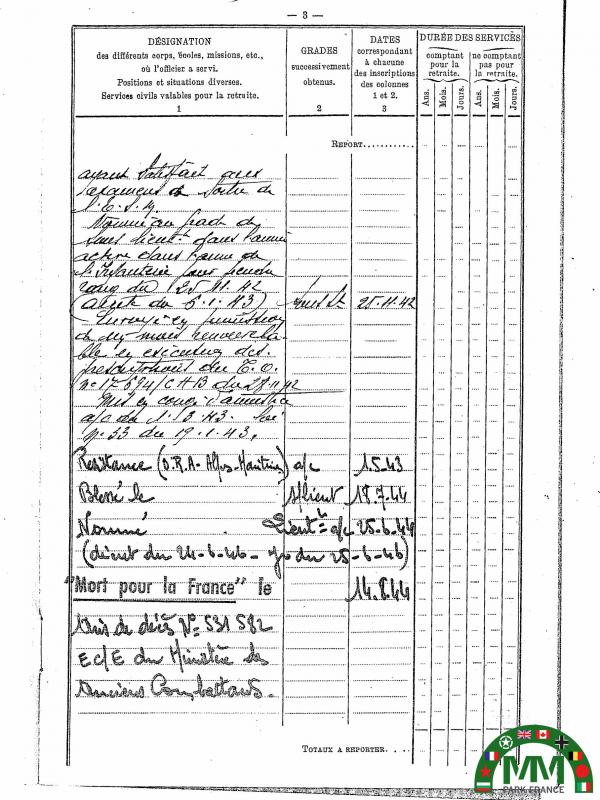 — 3 —
DÉSIGNATION
des différents corps, écoles, missions, etc.,
où l'officier a servi.
Positions et situations diverses.
Services civils valables pour la retraite.
1
GRADES
successivement
obtenus.
2
DATES
correspondant
à chacune
des inscriptions
des colonnes
1 et 2.
3
DURÉE DES SERVICES
comptant
pour la
retraite.
ne comptant
pas pour la
retraite.
Ans.
Mois.
Jours.
Ans.
Mois.
Jours.
REPORT
ayant satisfait aux
examens de sortie de
l'E.S.M.
Nommé au grade de
sous lieutt dans l'armée
active dans l'arme de
l'Infanterie pour prendre
rang du 25.11.42
(décret du 5.1.43) sous Lt 25.11.42
de dix mois renouvela-
ble en exécution des
prescriptions du T.O.
n° 17594/CAB du 27.11.42
Mis en congé d'armistice
a/c du 1.3.43.
n° 53 du 19.1.43.
Résistance (O.R.A- Alpes-Maritimes) a/c 1.5.43
Blessé le S/lieut 18.7.44
Nommé Lieutt a/c 25-6-44
(décret du 24-6-46 - jo du 25-6-46)
"Mort pour la France" le 14.8.44
Avis de décès N° 531 582
EC/E du Ministère des
Anciens Combattants.
TOTAUX A REPORTER
MM
PARK FRANCE